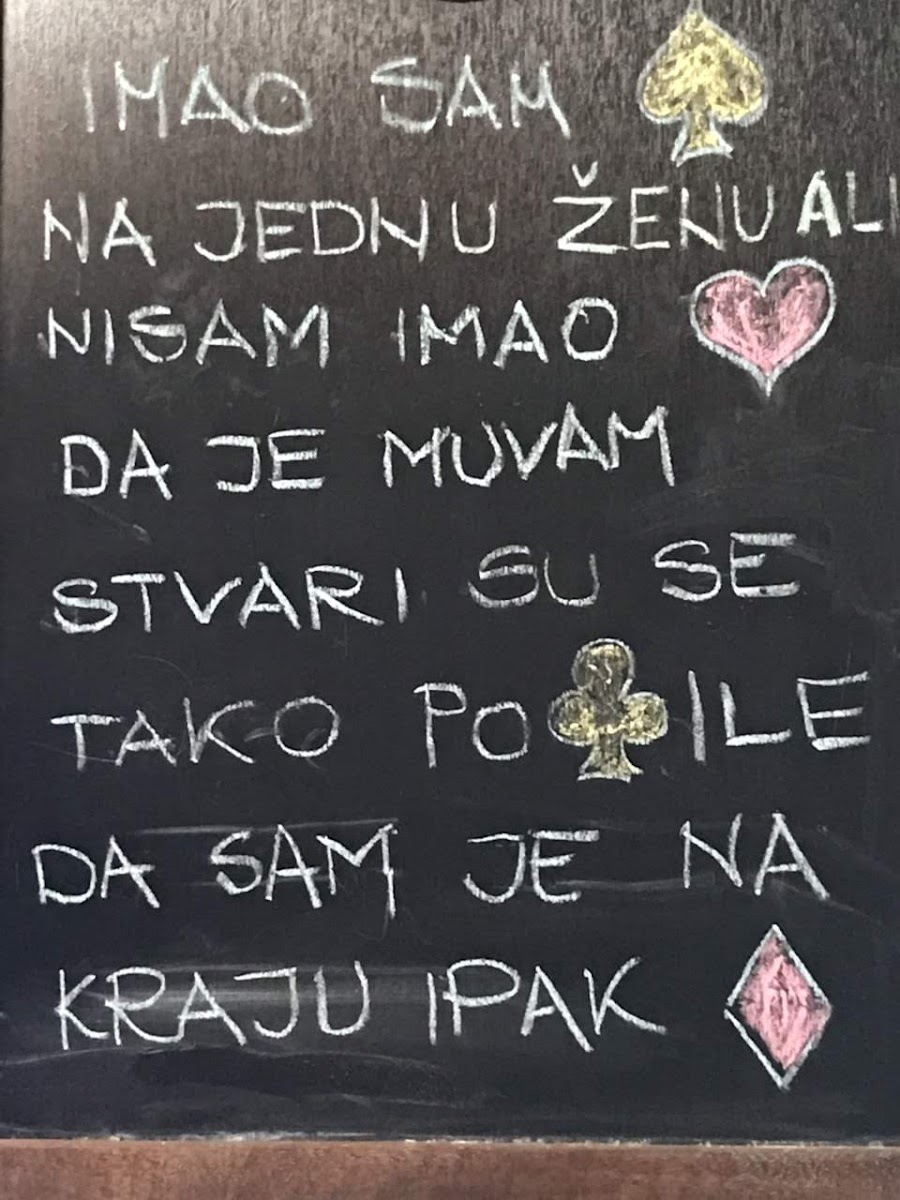 IMAO SAM ♠
NA JEDNU ŽENU ALI
NISAM IMAO ♥
DA JE MUVAM
STVARI SU SE
TAKO PO♣ILE
DA SAM JE NA
KRAJU IPAK ♦